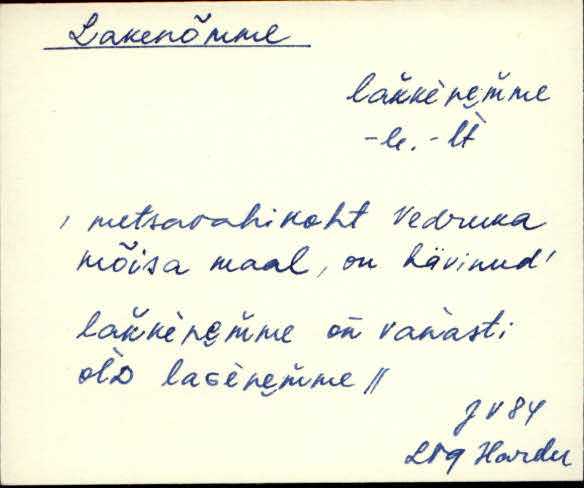 Lakenõmme
lak̆kène̮m̆me
-le. -lt̀
, metsavahikoht Vedruka
mõisa maal, on hävinud'
lak̆kène̮m̆me on̄ vanasti
olD laGène̮m̆me //
J V 84
Harder